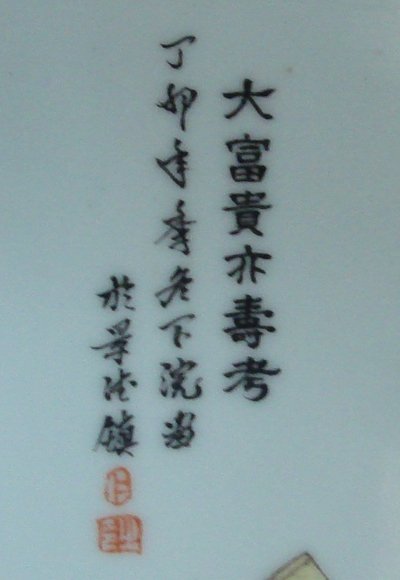 大富貴亦壽考
丁卯年季冬下浣
於景德鎮